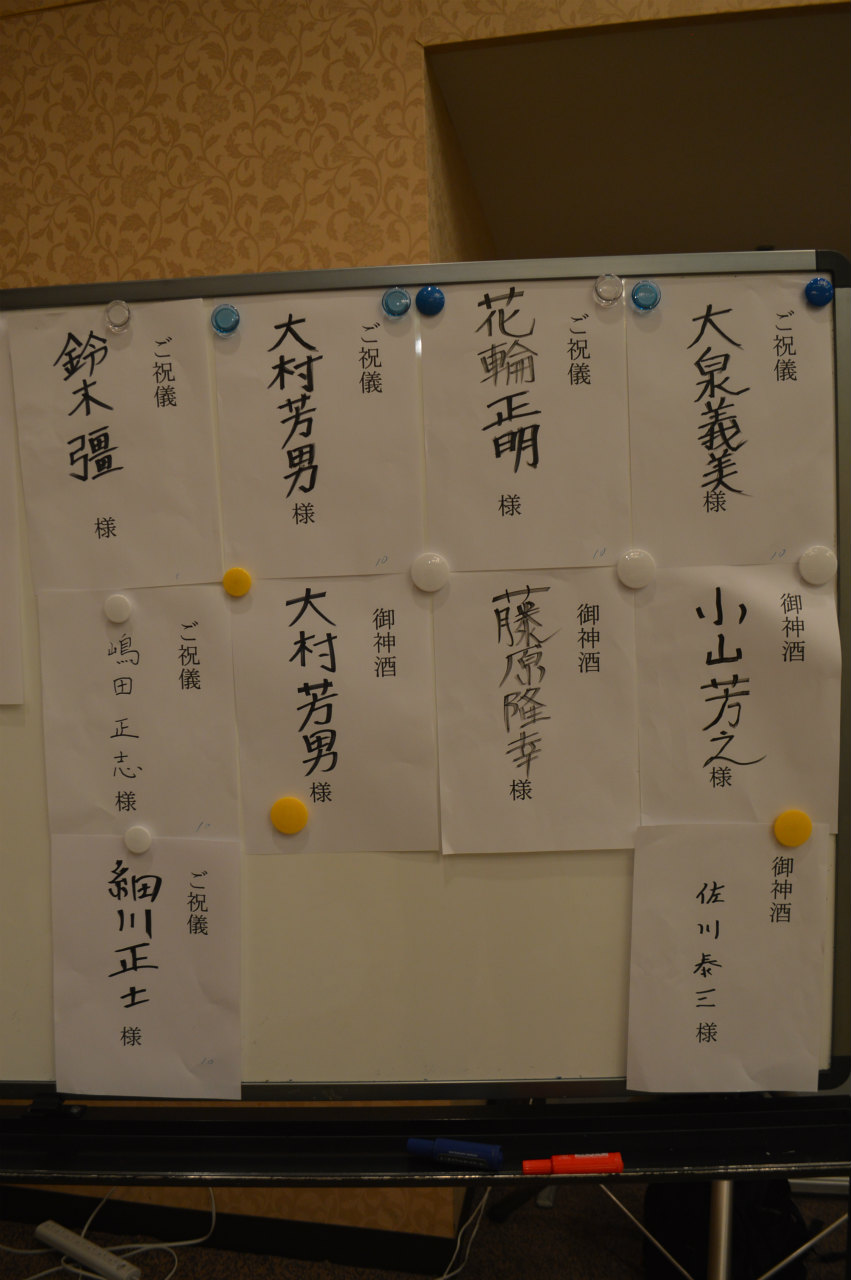 ご祝儀
大泉義美
様
10
ご祝儀
花輪正明
様
10
ご祝儀
大村芳男
様
10
ご祝儀
鈴木彊
様
御神酒
小山芳之
様
御神酒
藤原隆幸
様
御神酒
大村芳男
様
ご祝儀
嶋田正志
様
10
御神酒
佐川泰三
様
ご祝儀
細川正士
様
10